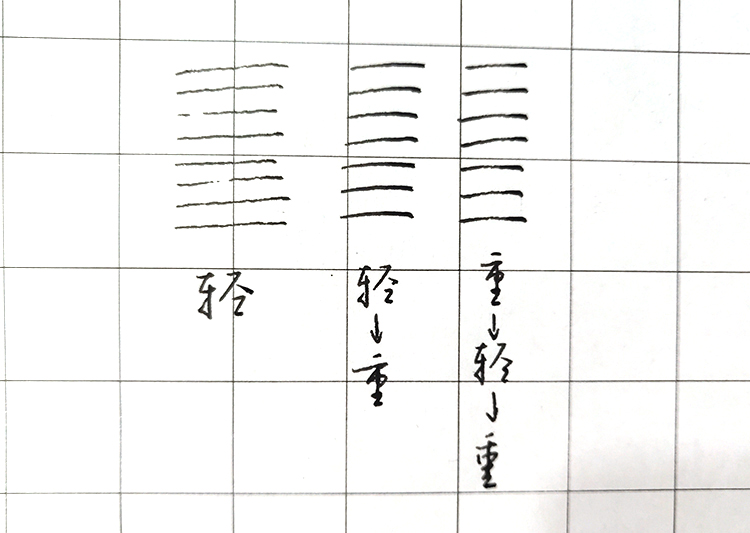 轻
轻
↓
重
重
↓
轻
↓
重